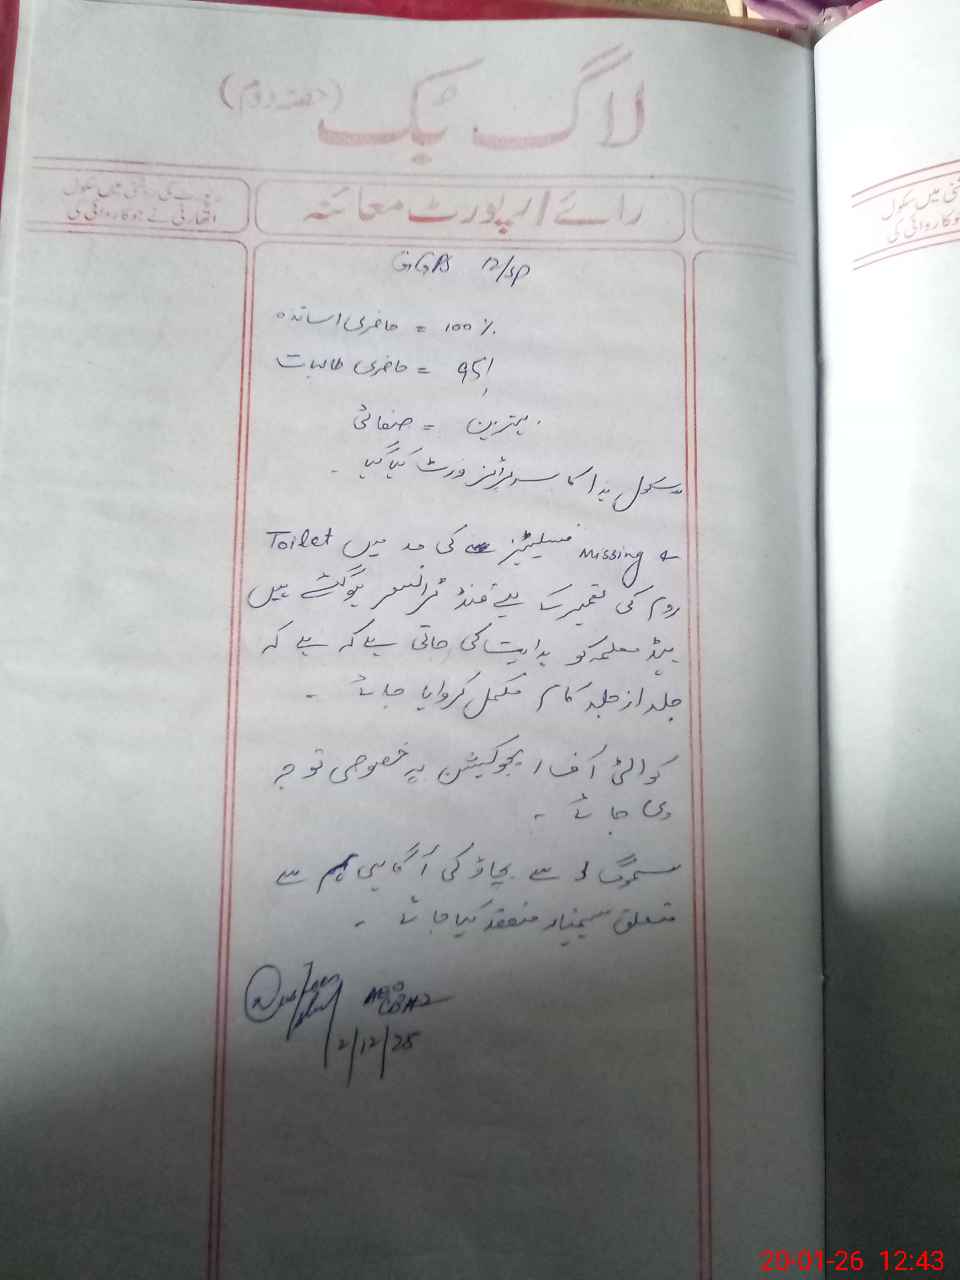 لاگ بک (حصہ دوم)
رائے / رپورٹ معائنہ
رپورٹ کی روشنی میں سکول
اتھارٹی نے جو کاروائی کی
شنی میں سکول
جو کاروائی کی
GGPS 12/SP
حاضری اساتذہ = 100 %
حاضری طالبات = 95%
صفائی = بہترین
سکول ہذا کا سرپرائز وزٹ کیا گیا ۔
Missing فسیلیٹیز کی مد میں Toilet
روم کی تعمیر کے لیے فنڈ ٹرانسفر ہوگئے ہیں
ہیڈ معلمہ کو ہدایت کی جاتی ہے کہ ہے کہ
جلد از جلد کام مکمل کروایا جائے ۔
کوالٹی آف ایجوکیشن پر خصوصی توجہ
دی جائے ۔
سموگ سے بچاؤ کی آگاہی سے
متعلق سیمینار منعقد کیا جائے ۔
AEO
2/12/25
20-01-26 12:43